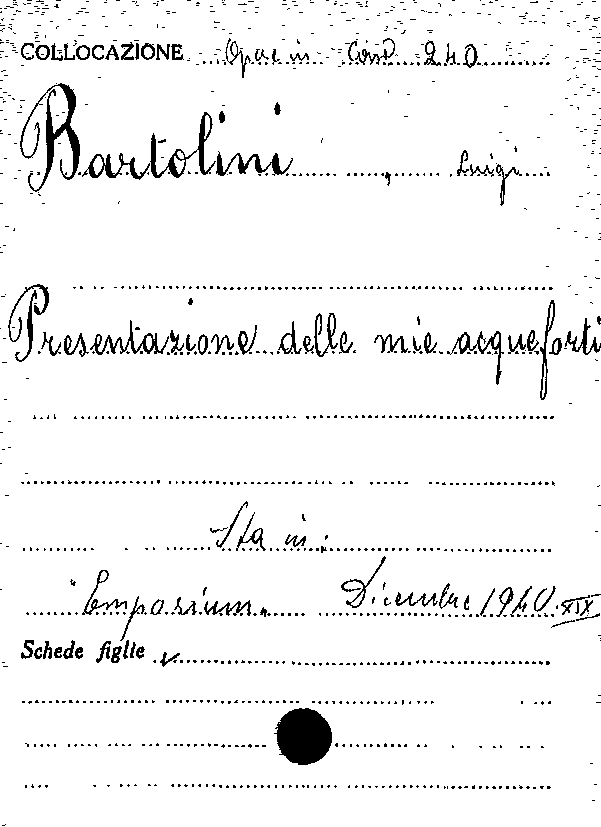 COLLOCAZIONE Opac in Cons 240
Bartolini, Luigi
Presentazione delle mie acqueforti
Sta in:
"Emporium" Dicembre 1940. XIX
Schede figlie